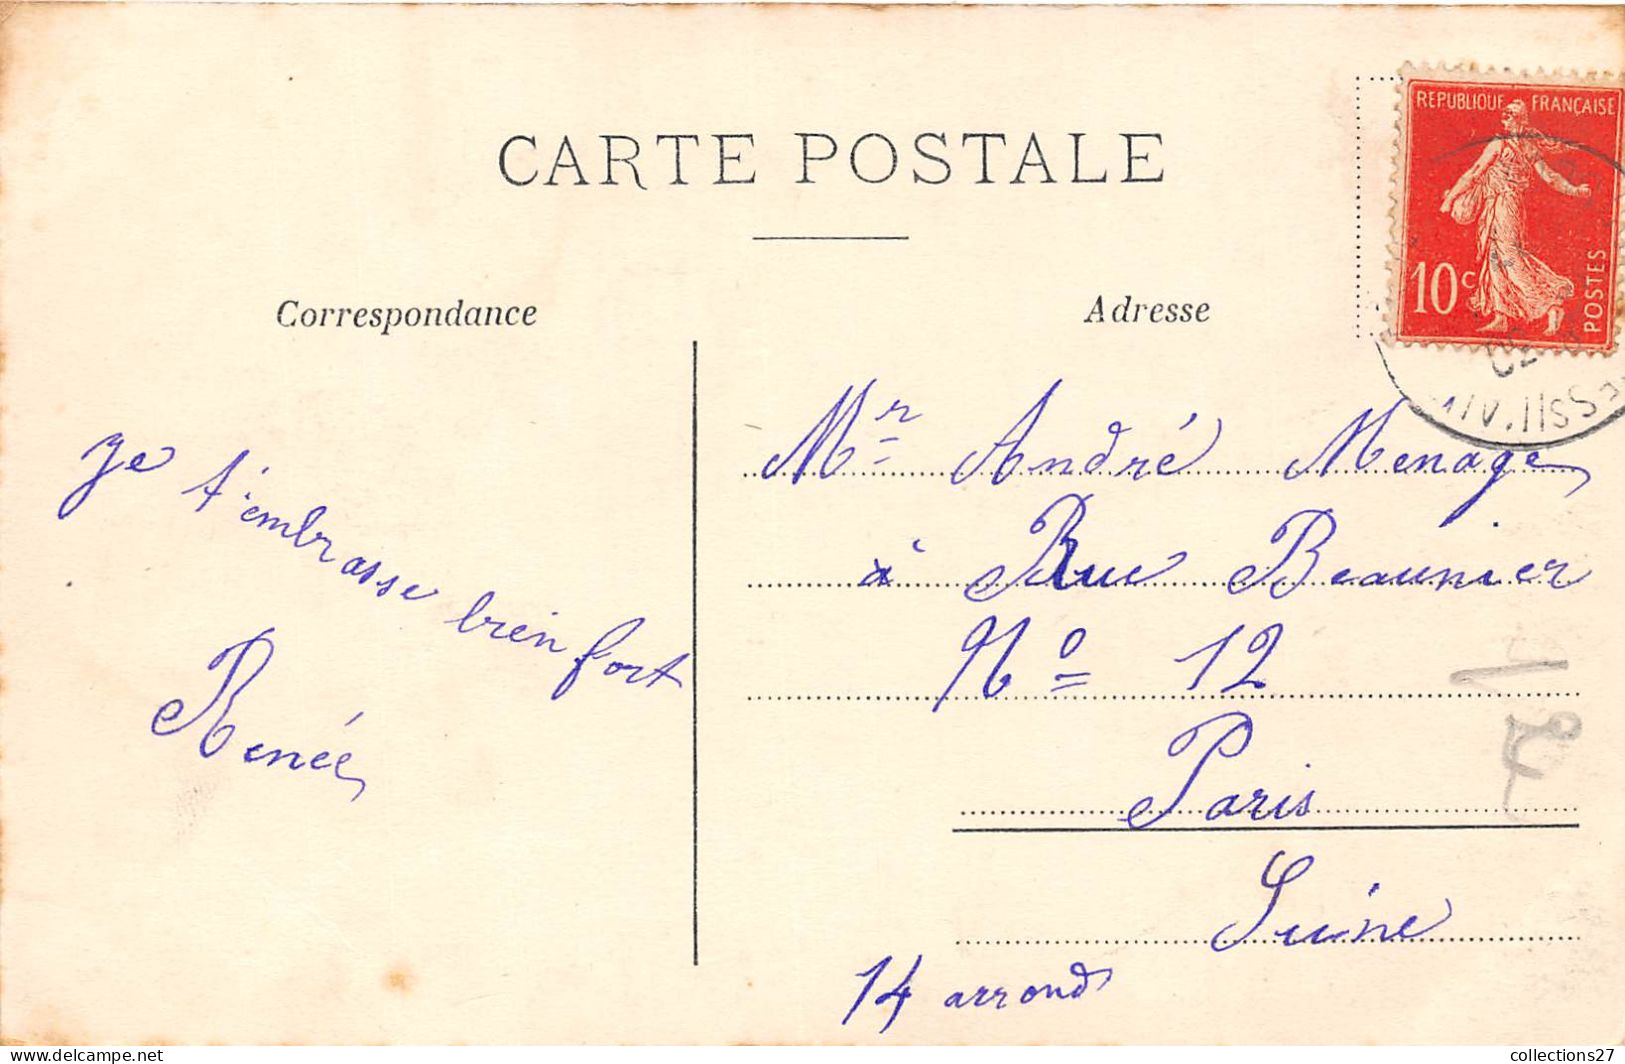 CARTE POSTALE
Correspondance
Adresse
REPUBLIQUE FRANÇAISE
10c
POSTES
Je t'embrasse bien fort
Renée
Mr André Menage
à Rue Beaunier
No 12
Paris
Seine
14 arrond
12
collections27